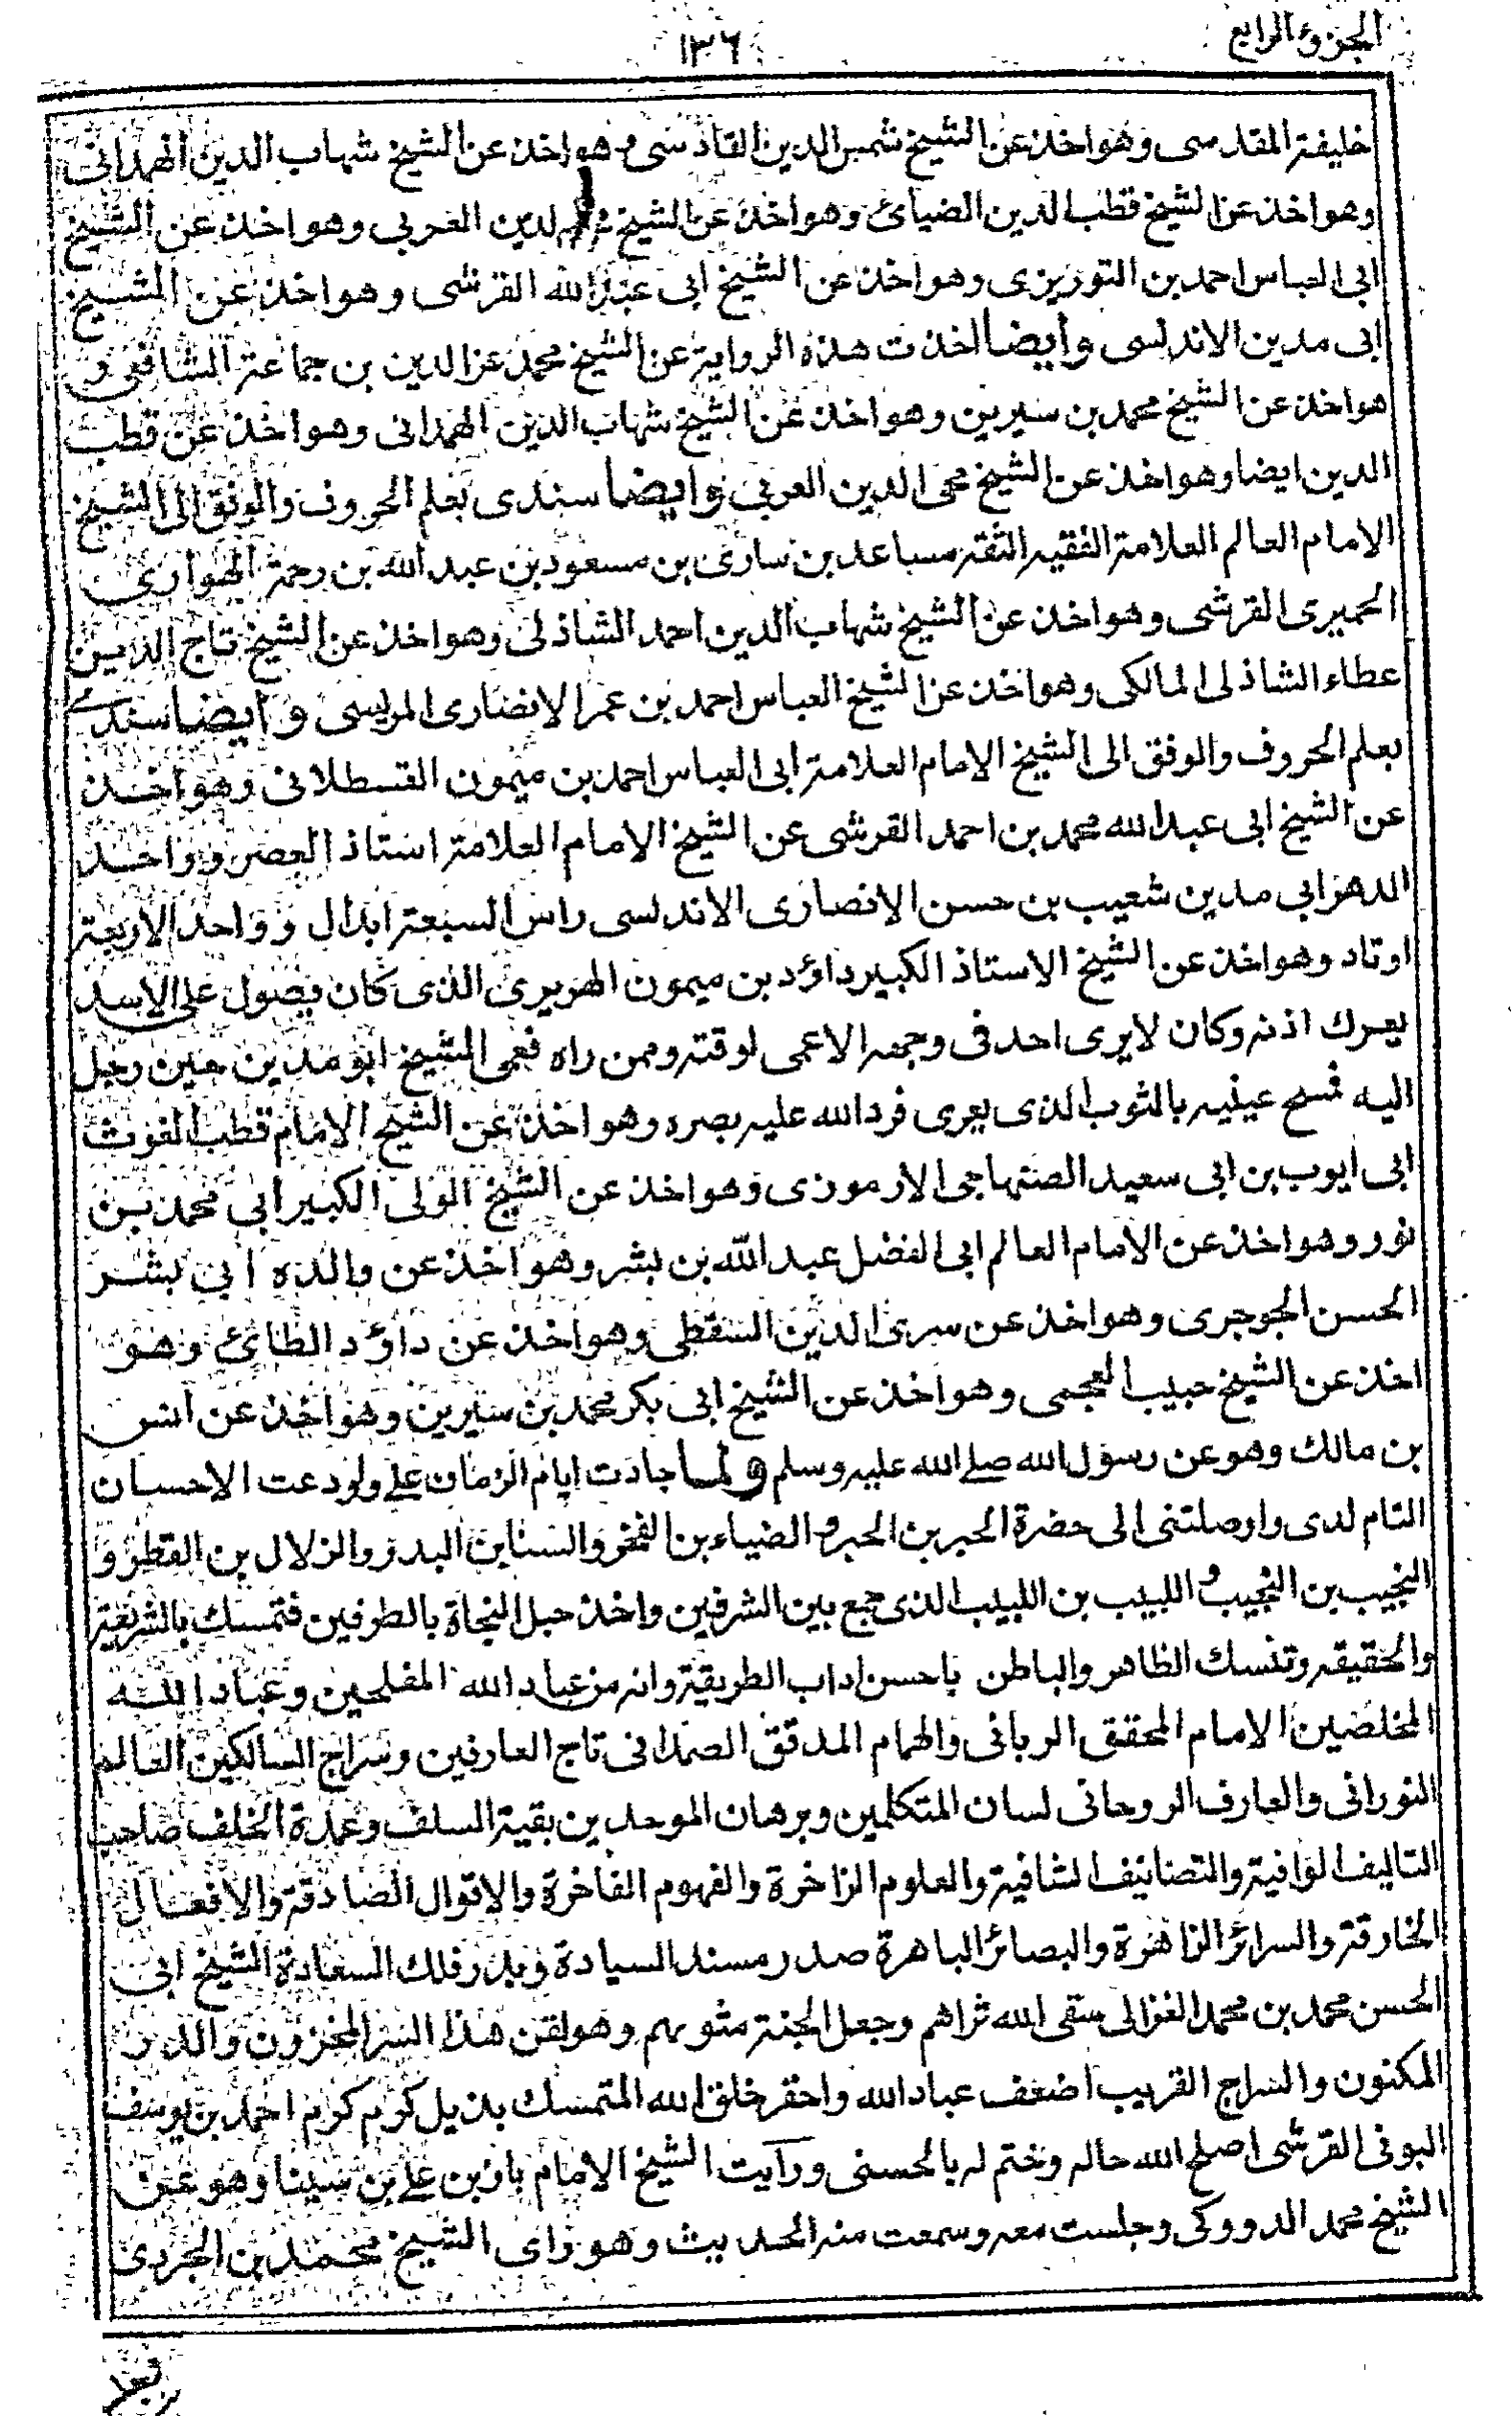 الجزو الرابع
١٣٦
خليفة المقدسي وهو اخذ عن الشيخ شمس الدين القادسي وهو اخذ عن الشيخ شهاب الدين الهمداني
وهو اخذ عن الشيخ قطب الدين الضيائ وهو اخذ عن الشيخ الدين الغربي وهو اخذ عن الشيخ
ابي العباس احمد بن التوريزي وهو اخذ عن الشيخ ابي عبد الله القرشي وهو اخذ عن الشيخ
ابي مدين الاندلسي وايضا اخذت هذه الرواية عن الشيخ محمد عز الدين بن جماعة الشافعي و
هو اخذ عن الشيخ محمد بن سيرين وهو اخذ عن الشيخ شهاب الدين الهمداني وهو اخذ عن قطب
الدين ايضا وهو اخذ عن الشيخ محي الدين العربي وايضا سندي بعلم الحروف والوفق الى الشيخ
الامام العالم العلامة الفقيه الثقة مساعد بن ساري بن مسعود بن عبد الله بن رحمة الهواري
الحميري القرشي وهو اخذ عن الشيخ شهاب الدين احمد الشاذلي وهو اخذ عن الشيخ تاج الدين
عطاء الشاذلي المالكي وهو اخذ عن الشيخ العباس احمد بن عمر الانصاري المريسي وايضا سندي
بعلم الحروف والوفق الى الشيخ الامام العلامة ابي العباس احمد بن ميمون القسطلاني وهو اخذ
عن الشيخ ابي عبد الله محمد بن احمد القرشي عن الشيخ الامام العلامة استاذ العصر وواحد
الدهر ابي مدين شعيب بن حسن الانصاري الاندلسي راس السبعة ابدال وواحد الاربعة
اوتاد وهو اخذ عن الشيخ الاستاذ الكبير داؤد بن ميمون الهزيري الذي كان يصول على الاسد
يعرك اذنه وكان لا يرى احد في وجهه الا عمى لوقته وممن راه فعمي الشيخ ابو مدين حين رحل
اليه فمسح عينيه بالثوب الذي يعرى فرد الله عليه بصره وهو اخذ عن الشيخ الامام قطب الغوث
ابي ايوب بن ابي سعيد الصنهاجي الارموزي وهو اخذ عن الشيخ الولي الكبير ابي محمد بن
نور وهو اخذ عن الامام العالم ابي الفضل عبد الله بن بشر وهو اخذ عن والده ابي بشر
الحسن الجوجري وهو اخذ عن سري الدين السقطي وهو اخذ عن داؤد الطائ وهو
اخذ عن الشيخ حبيب العجمي وهو اخذ عن الشيخ ابي بكر محمد بن سيرين وهو اخذ عن انس
بن مالك وهو عن رسول الله صلے الله عليه وسلم ولما جادت ايام الزمان علے ولودعت الاحسان
التام لدى وارصلتني الى حضرة الحبر بن الحبر والضياء بن الفخر والسنا بن البدر والزلال بن القطر و
النجيب بن النجيب و اللبيب بن اللبيب الذي جمع بين الشرفين واخذ حبل النجاة بالطرفين فتمسك بالشريعة
والحقيقه وتنسك الظاهر والباطن باحسن اداب الطريقة وانه من عباد الله المفلحين وعباد الله
المخلصين الامام المحقق الرباني والهمام المدقق الصمداني تاج العارفين وسراج السالكين العالم
النوراني والعارف الروحاني لسان المتكلمين وبرهان الموحدين بقية السلف وعمدة الخلف صاحب
التاليف الوافية والتصانيف الشافية والعلوم الزاخرة والفهوم الفاخرة والاقوال الصادقة والافعال
الخارقة والسرائر الزاهرة والبصائر الباهرة صدر مسند السيادة وبدر فلك السعادة الشيخ ابي
الحسن محمد بن محمد الغزالي سقى الله ثراهم وجعل الجنة مثويهم وهو لقن هذا السر المخزون والدر
المكنون والسراج القريب اضعف عباد الله واحقر خلق الله المتمسك بذيل كرم كريم احمد بن يوسف
البوني القرشي اصلح الله حاله وختم له بالحسنى ورآيت الشيخ الامام بن علے بن سينا وهو عن
الشيخ محمد الدووكي وجلست معه وسمعت منه الحديث وهو راى الشيخ محمد بن الجردي